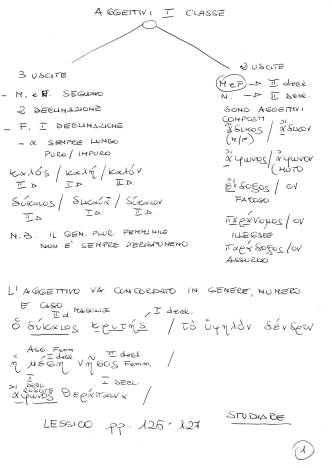 AGGETTIVI I CLASSE
3 USCITE
- M. e N. SEGUONO
2 DECLINAZIONE
- F. I DECLINAZIONE
- α SEMPRE LUNGO
PURO/IMPURO
καλός/καλή/καλόν
II D. I D. II D.
δίκαιος/δικαία/δίκαιον
II D. I D. II D.
N.B. IL GEN. PLUR. FEMMINILE
NON È SEMPRE PERISPOMENO
2 USCITE
M e F -> II decl.
N. -> II decl.
SONO AGGETTIVI
COMPOSTI
ἄδικος / ἄδικον
(M/F)
ἄφωνος/ἄφωνον
(MUTO)
ἔνδοξος/ον
FAMOSO
παράνομος/ον
ILLEGALE
παράδοξος/ον
ASSURDO
L'AGGETTIVO VA CONCORDATO IN GENERE, NUMERO
E CASO
II d MASCHILE I decl.
ὁ δίκαιος κριτής / τὸ ὑψηλὸν δένδρον
AGG. Femm
I decl II decl
ἡ μέση νῆσος Femm. /
II DECL I DECL.
2 USCITE
ἄφωνος θεράπαινα /
LESSICO pp. 125-127
STUDIARE
1